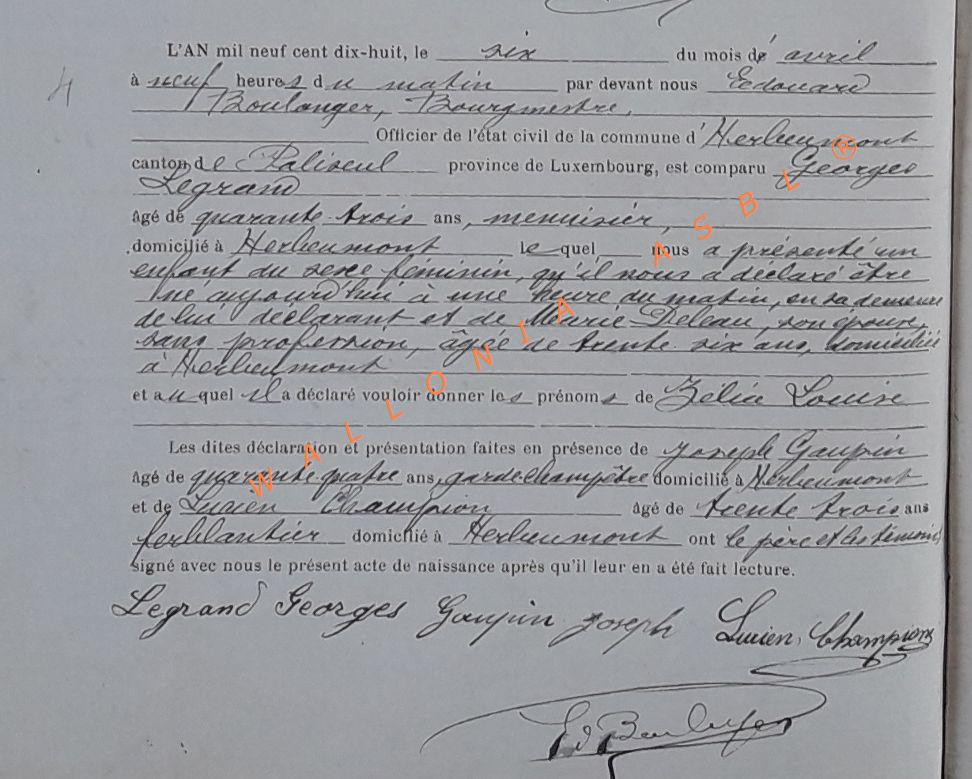 L'AN mil neuf cent dix-huit, le six du mois d'avril
4
à neuf heures du matin par devant nous Edouard
Boulanger, Bourgmestre,
Officier de l'état civil de la commune d'Herbeumont
canton de Paliseul province de Luxembourg, est comparu Georges
Legrand
âgé de quarante-trois ans, menuisier,
domicilié à Herbeumont lequel nous a présenté un
enfant du sexe féminin, qu'il nous a déclaré être
né aujourd'hui à une heure du matin, en sa demeure
de lui déclarant et de Marie Deleau, son épouse,
sans profession, âgée de trente-six ans, domiciliée
à Herbeumont
et auquel il a déclaré vouloir donner les prénoms de Zélie Louise
Les dites déclaration et présentation faites en présence de Joseph Gaupin
âgé de quarante-quatre ans, garde-champêtre domicilié à Herbeumont
et de Lucien Champion âgé de trente trois ans
ferblantier domicilié à Herbeumont ont le père et les témoins
signé avec nous le présent acte de naissance après qu'il leur en a été fait lecture.
Legrand Georges Gaupin Joseph Lucien Champion
Ed Boulanger
WALLONIA ASBL ®